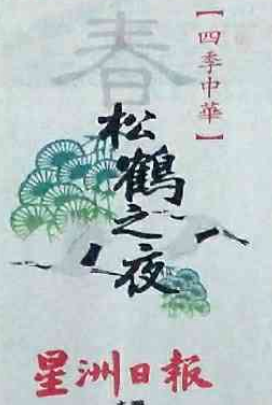 【四季中華】
春
松鶴之夜
星洲日報